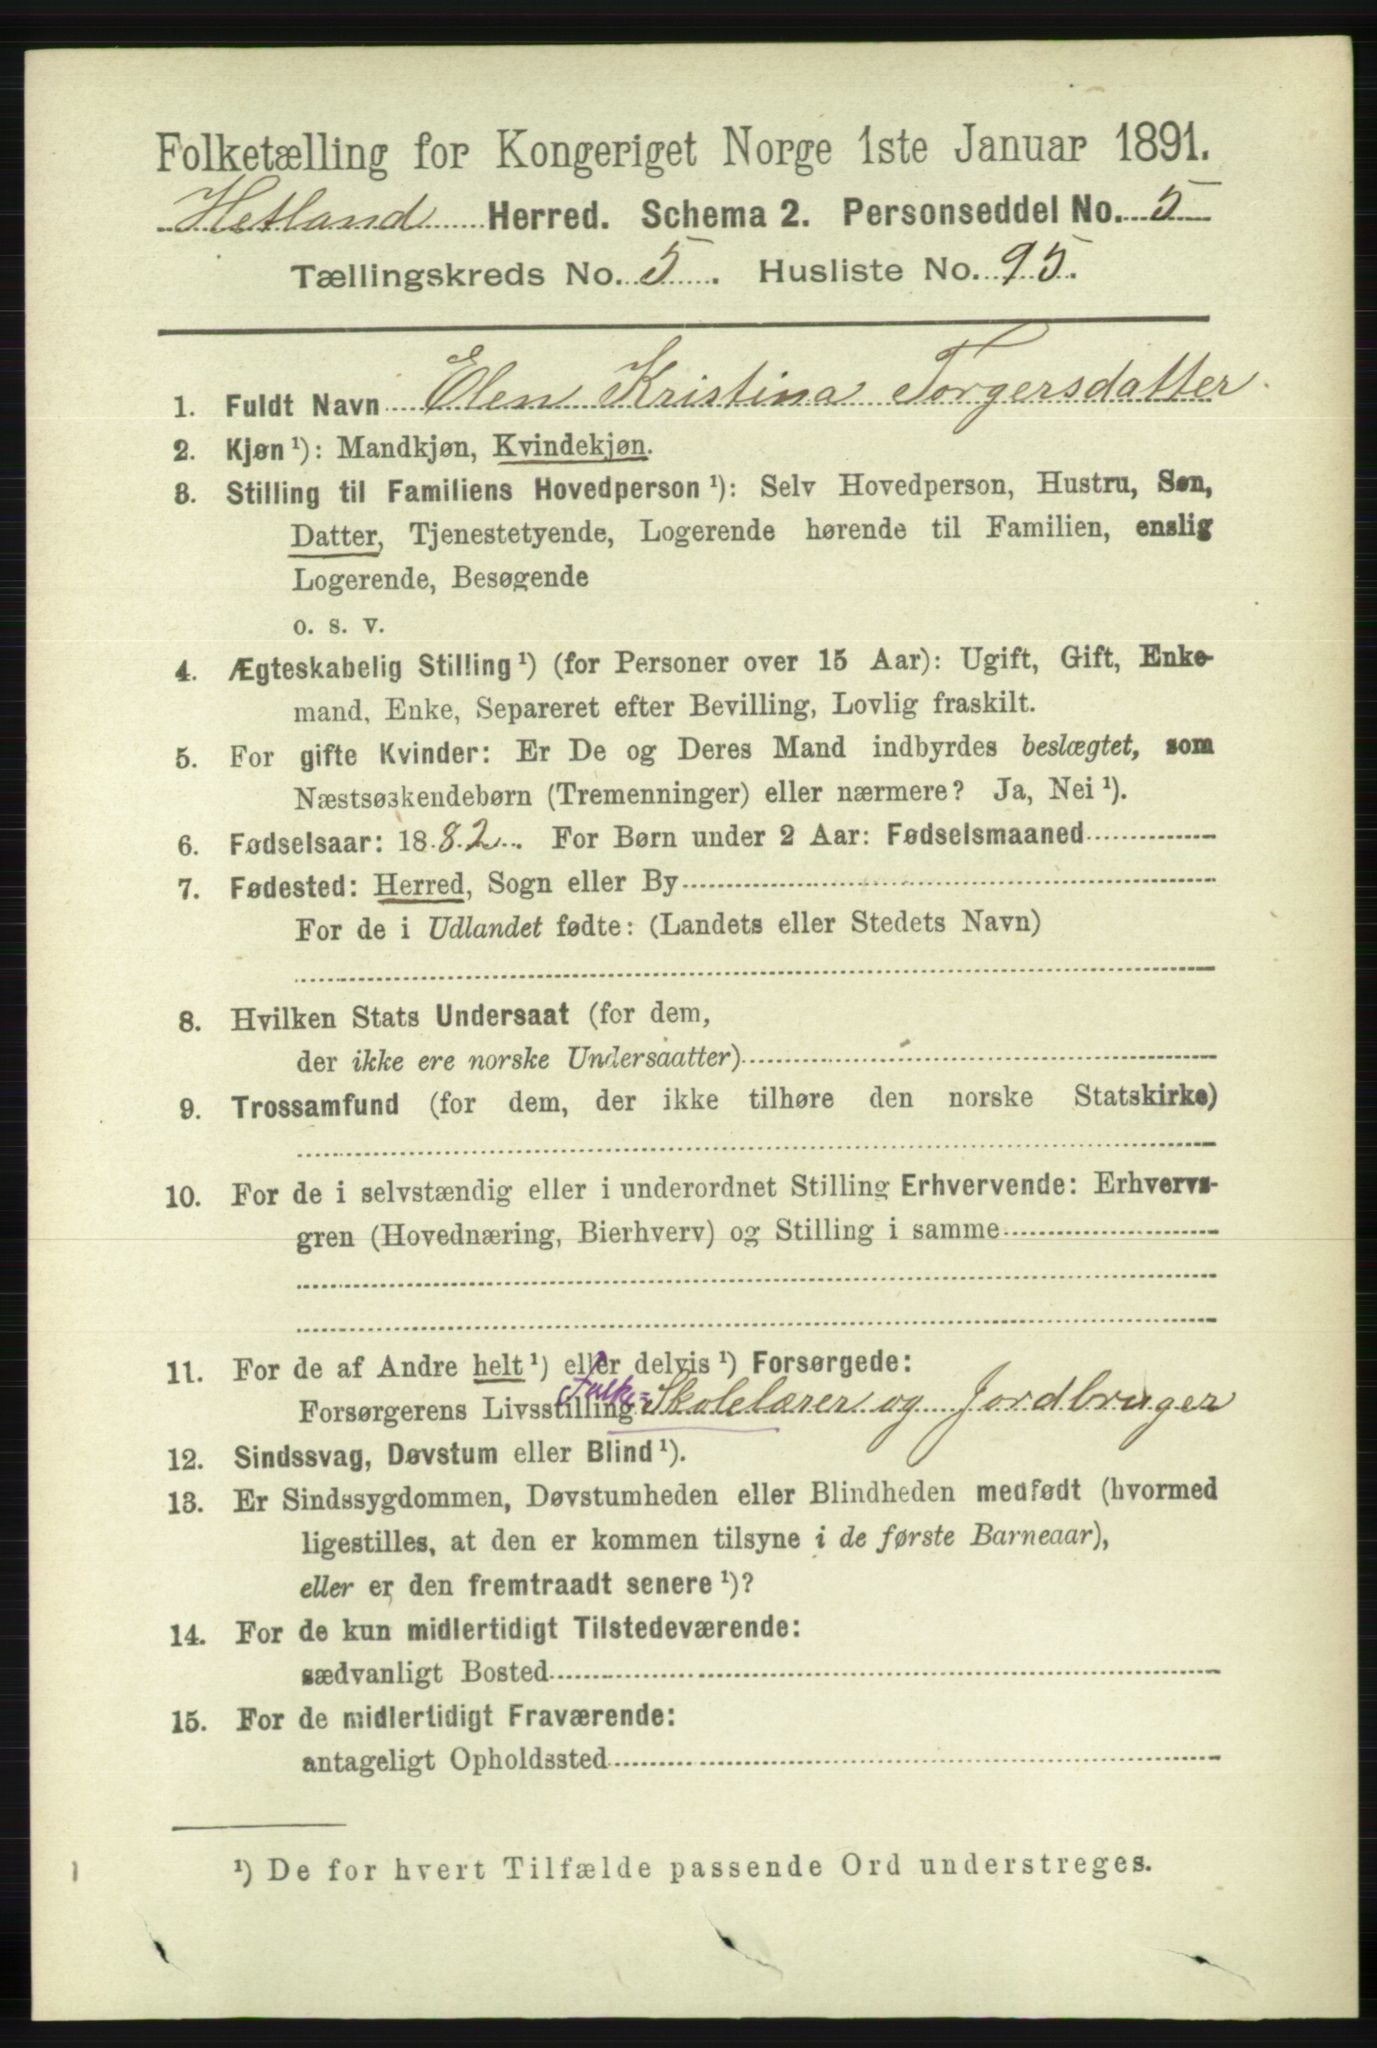 Folketælling for Kongeriget Norge 1ste Januar 1891.
Hetland Herred. Schema 2. Personseddel No. 5
Tællingskreds No. 5. Husliste No. 95.
1. Fuldt Navn Elen Kristina Torgersdatter
2. Kjøn ¹): Mandkjøn, Kvindekjøn.
3. Stilling til Familiens Hovedperson ¹): Selv Hovedperson, Hustru, Søn,
Datter, Tjenestetyende, Logerende hørende til Familien, enslig
Logerende, Besøgende
o. s. v.
4. Ægteskabelig Stilling ¹) (for Personer over 15 Aar): Ugift, Gift, Enke-
mand, Enke, Separeret efter Bevilling, Lovlig fraskilt.
5. For gifte Kvinder: Er De og Deres Mand indbyrdes beslægtet, som
Næstsøskendebørn (Tremenninger) eller nærmere? Ja, Nei ¹).
6. Fødselsaar: 1882. For Børn under 2 Aar: Fødselsmaaned
7. Fødested: Herred, Sogn eller By
For de i Udlandet fødte: (Landets eller Stedets Navn)
8. Hvilken Stats Undersaat (for dem,
der ikke ere norske Undersaatter)
9. Trossamfund (for dem, der ikke tilhøre den norske Statskirke)
10. For de i selvstændig eller i underordnet Stilling Erhvervende: Erhvervs-
gren (Hovednæring, Bierhverv) og Stilling i samme
11. For de af Andre helt ¹) eller delvis ¹) Forsørgede:
Forsørgerens Livsstilling Folke= Skolelærer og Jordbruger
12. Sindssvag, Døvstum eller Blind ¹).
13. Er Sindssygdommen, Døvstumheden eller Blindheden medfødt (hvormed
ligestilles, at den er kommen tilsyne i de første Barneaar),
eller er den fremtraadt senere ¹)?
14. For de kun midlertidigt Tilstedeværende:
sædvanligt Bosted
15. For de midlertidigt Fraværende:
antageligt Opholdssted
¹) De for hvert Tilfælde passende Ord understreges.